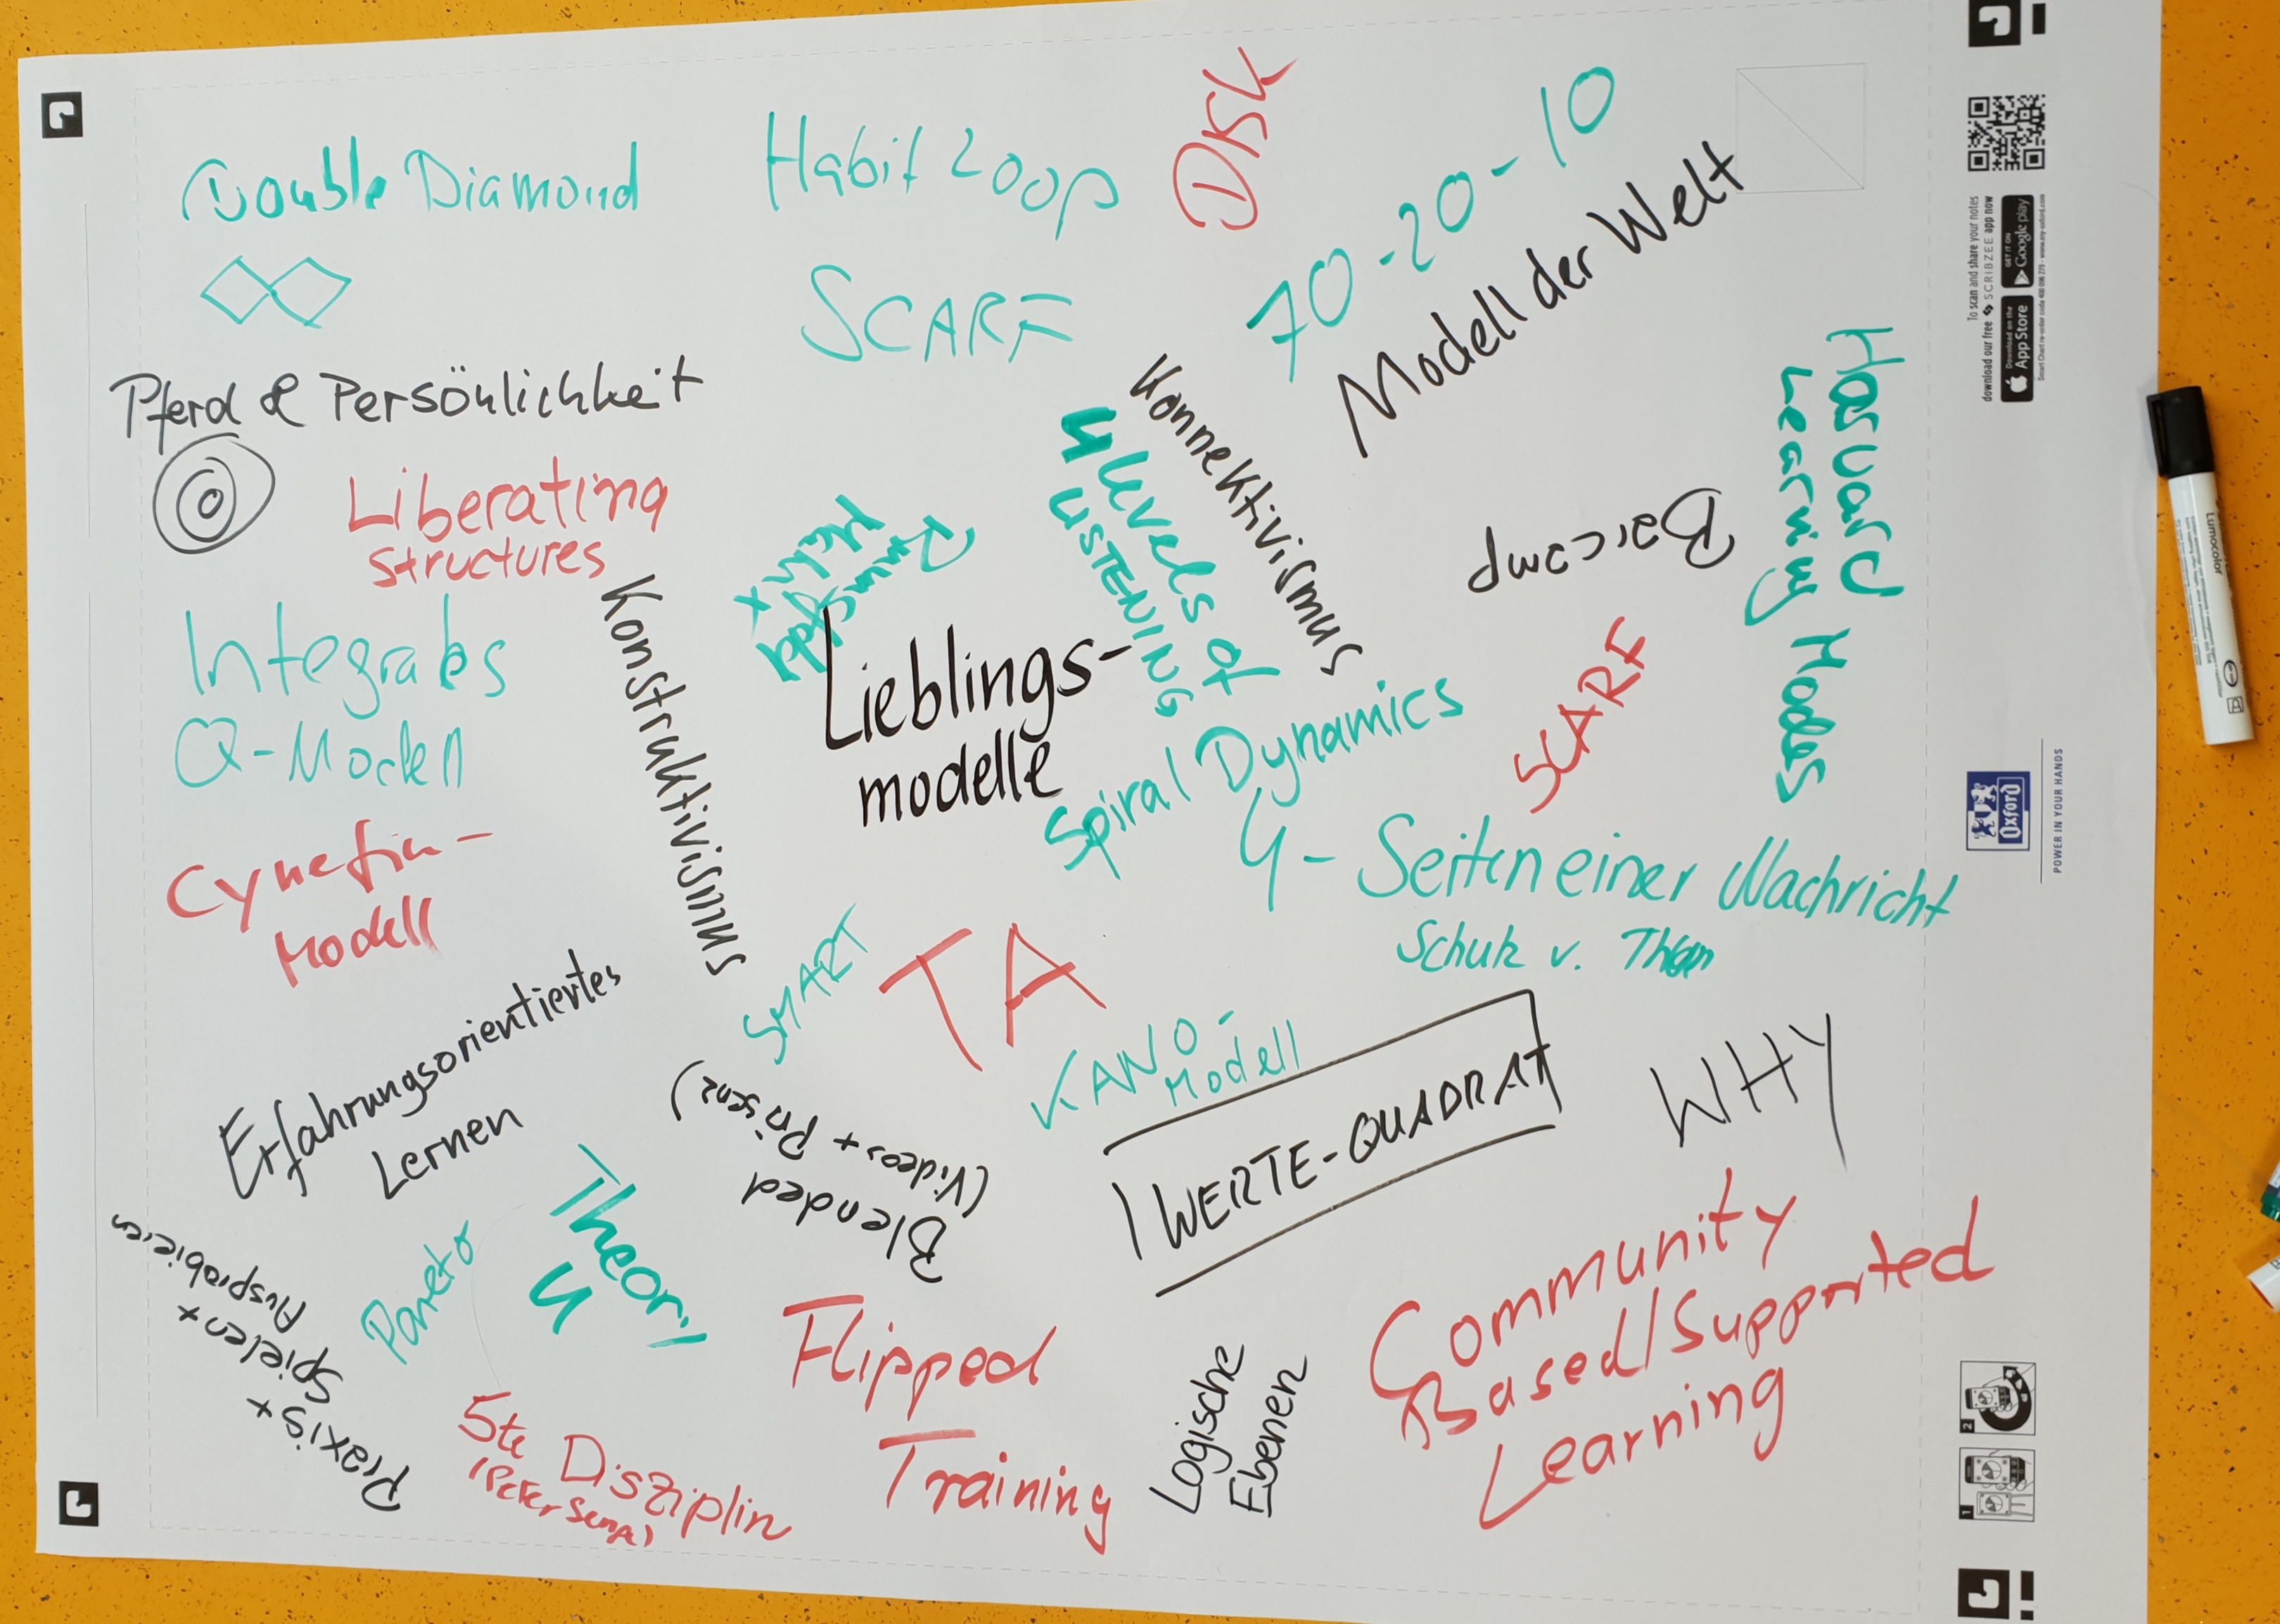 Double Diamond
Habit Loop
DISK
70-20-10
SCARF
Modell der Welt
Pferd & Persönlichkeit
Konnektivismus
4 levels of
LISTENING
Harvard
Learning Modes
Liberating
structures
Barcamp
Konstruktivismus
Integrales
Q-Modell
Lieblings-
modelle
Spiral Dynamics
SCARF
Cynefin-
Modell
4-Seiten einer Nachricht
Schulz v. Thun
SMART
TA
KANO-
Modell
Erfahrungsorientiertes
Lernen
Blended
(Videos + Präsenz)
WERTE-QUADRAT
WHY
Theory
U
Pareto
Praxis +
Spielen +
Ausprobieren
Flipped
Training
5te Disziplin
(Peter Senge)
Logische
Ebenen
Community
Based/Supported
Learning
To scan and share your notes
download our free SCRIBZEE app now
Download on the
App Store
GET IT ON
Google play
Oxford
POWER IN YOUR HANDS
1
2
Lumocolor